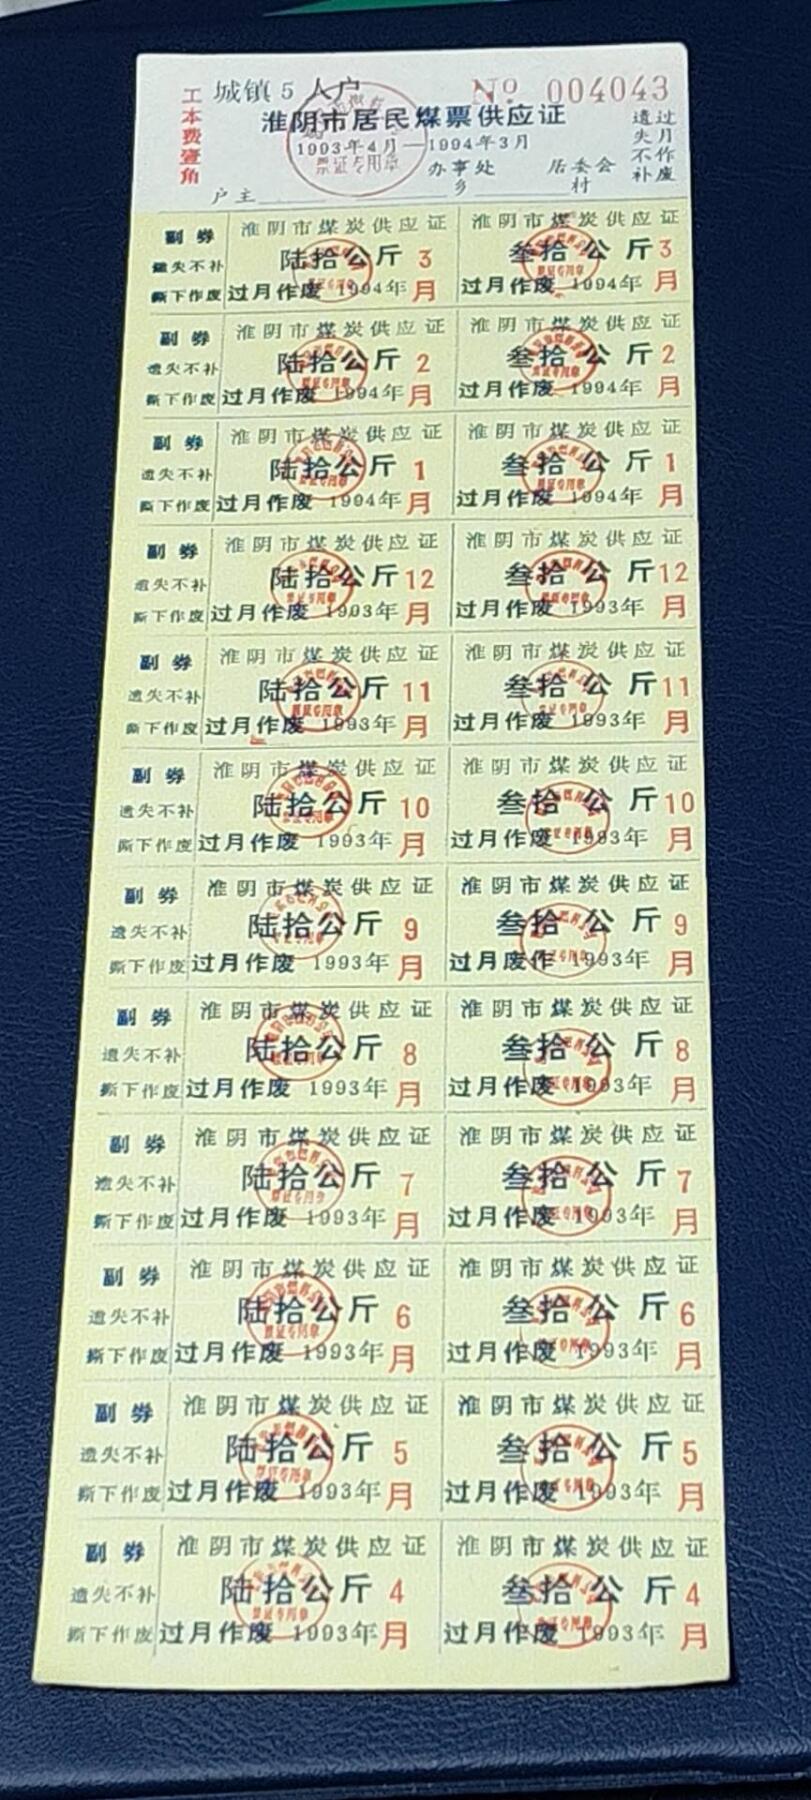 工本费壹角
城镇 5 人户
No 004043
淮阴市居民煤票供应证
1993年4月—1994年3月
票证专用章
过月作废
遗失不补
户主
办事处
乡
居委会
村
副券
遗失不补
撕下作废
淮阴市煤炭供应证
陆拾公斤 3
过月作废 1994年月
淮阴市煤炭供应证
叁拾公斤 3
过月作废 1994年月
副券
遗失不补
撕下作废
淮阴市煤炭供应证
陆拾公斤 2
过月作废 1994年月
淮阴市煤炭供应证
叁拾公斤 2
过月作废 1994年月
副券
遗失不补
撕下作废
淮阴市煤炭供应证
陆拾公斤 1
过月作废 1994年月
淮阴市煤炭供应证
叁拾公斤 1
过月作废 1994年月
副券
遗失不补
撕下作废
淮阴市煤炭供应证
陆拾公斤 12
过月作废 1993年月
淮阴市煤炭供应证
叁拾公斤 12
过月作废 1993年月
副券
遗失不补
撕下作废
淮阴市煤炭供应证
陆拾公斤 11
过月作废 1993年月
淮阴市煤炭供应证
叁拾公斤 11
过月作废 1993年月
副券
遗失不补
撕下作废
淮阴市煤炭供应证
陆拾公斤 10
过月作废 1993年月
淮阴市煤炭供应证
叁拾公斤 10
过月作废 1993年月
副券
遗失不补
撕下作废
淮阴市煤炭供应证
陆拾公斤 9
过月作废 1993年月
淮阴市煤炭供应证
叁拾公斤 9
过月废作 1993年月
副券
遗失不补
撕下作废
淮阴市煤炭供应证
陆拾公斤 8
过月作废 1993年月
淮阴市煤炭供应证
叁拾公斤 8
过月作废 1993年月
副券
遗失不补
撕下作废
淮阴市煤炭供应证
陆拾公斤 7
过月作废 1993年月
淮阴市煤炭供应证
叁拾公斤 7
过月作废 1993年月
副券
遗失不补
撕下作废
淮阴市煤炭供应证
陆拾公斤 6
过月作废 1993年月
淮阴市煤炭供应证
叁拾公斤 6
过月作废 1993年月
副券
遗失不补
撕下作废
淮阴市煤炭供应证
陆拾公斤 5
过月作废 1993年月
淮阴市煤炭供应证
叁拾公斤 5
过月作废 1993年月
副券
遗失不补
撕下作废
淮阴市煤炭供应证
陆拾公斤 4
过月作废 1993年月
淮阴市煤炭供应证
叁拾公斤 4
过月作废 1993年月